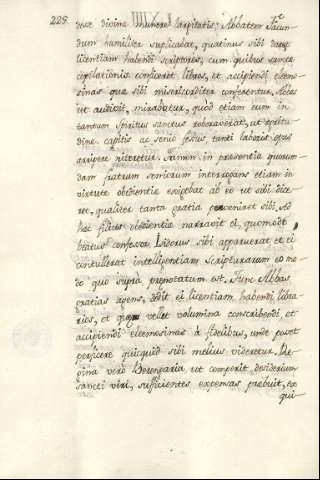 228.
ence divine munere largitatis; Abbatem Facun
dum humiliter suplicabat, quatinus sibi daret
licentiam habendi scriptores, cum quibus sancte
copilationis conficeret libros, et accipiendi elemo
sinas que sibi misericorditer conferentur. Abbas
ut audivit, mirabatur, quod etiam eum in
tantum Spiritus Sanctus roboraverat, ut egritu
dine capitis ac senio fessus, tanti laboris opus
arripere niteretur. Tamen in presentia quorun
dam fratrum seniorum interrogans etiam in
virtute obedientie exigebat ab eo ut sibi dice
ret, qualiter tanta gratia perveniret sibi, sed
hec filius obedientie narravit ei, quomodo
beatus confesor Isidorus sibi apparuerat et ei
contullerat intelligentiam Scripturarum eo mo
do quo supra prenotatum est. Tunc Abbas
gratias agens, dedit ei licentiam habendi libra
rios, et que vellet volumina conscribendi, et
accipiendi elemosinas à fidelibus, unde posset
perficere quicquid sibi melius videretur. Re
gina vero Berengaria, ut comperit desiderium
sancti viri, sufficientes expensas prebuit, ex
qui